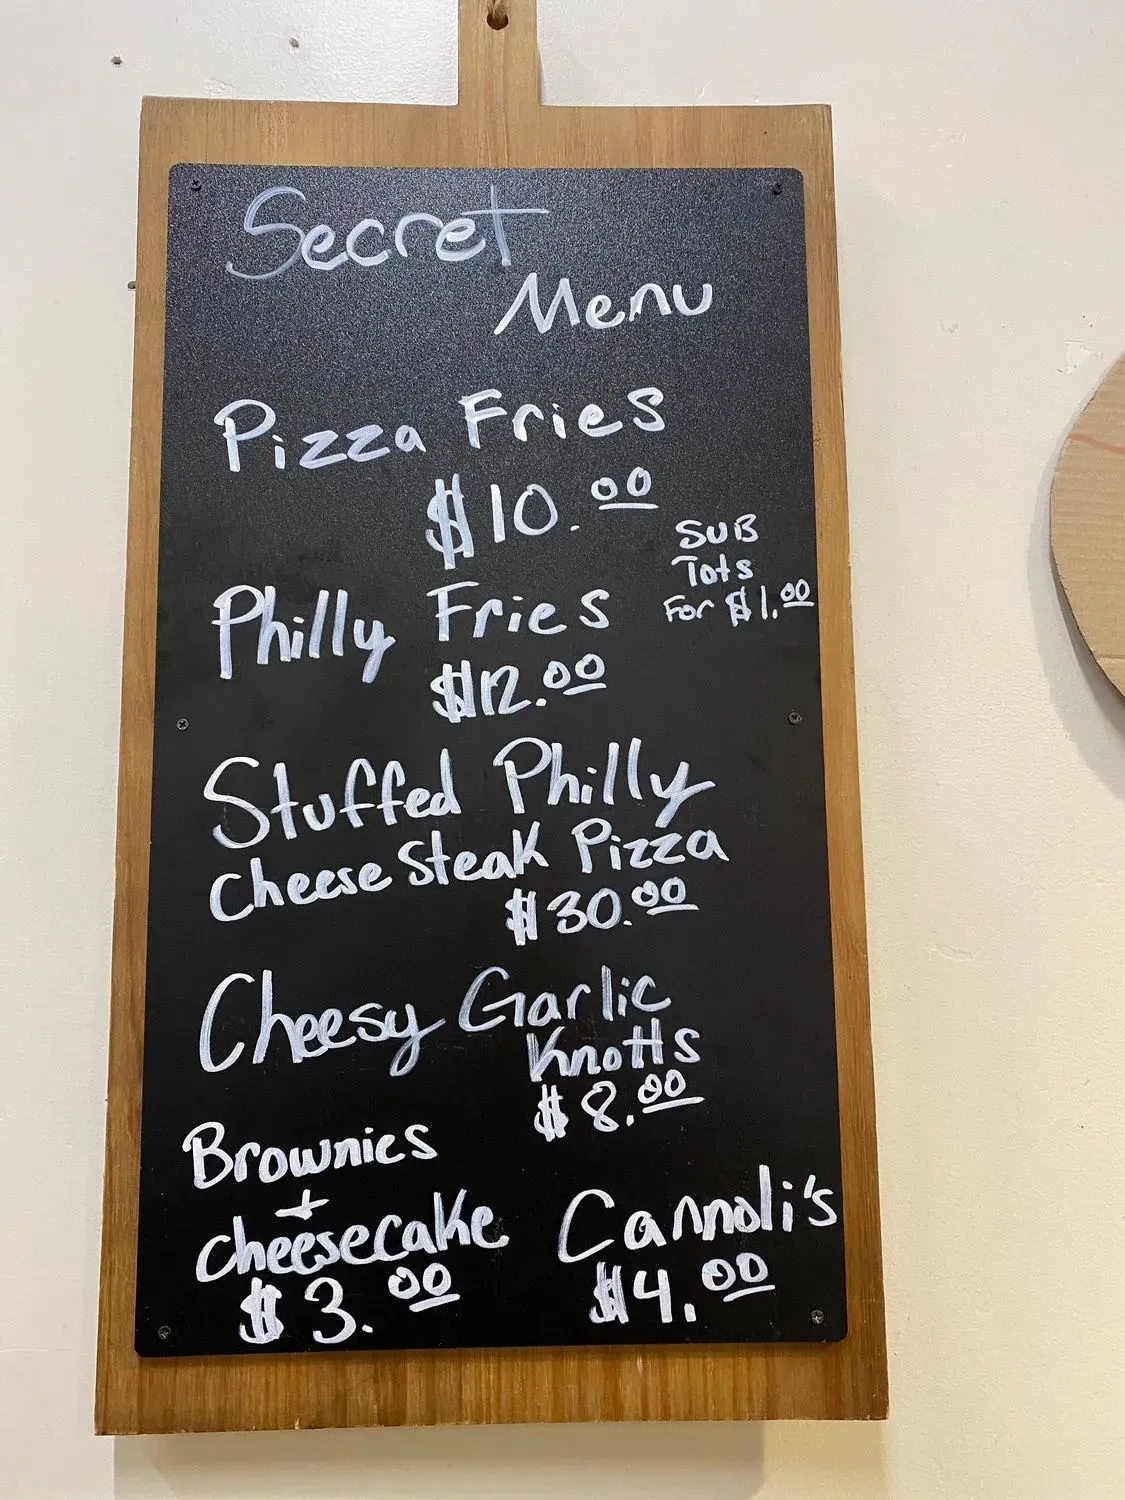 Secret
Menu
Pizza Fries
$10.00
SUB
Tots
For $1.00
Philly Fries
$12.00
Stuffed Philly
Cheese Steak Pizza
$30.00
Cheesy Garlic
Knotts
$8.00
Brownies
+
cheesecake
$3.00
Cannoli's
$4.00